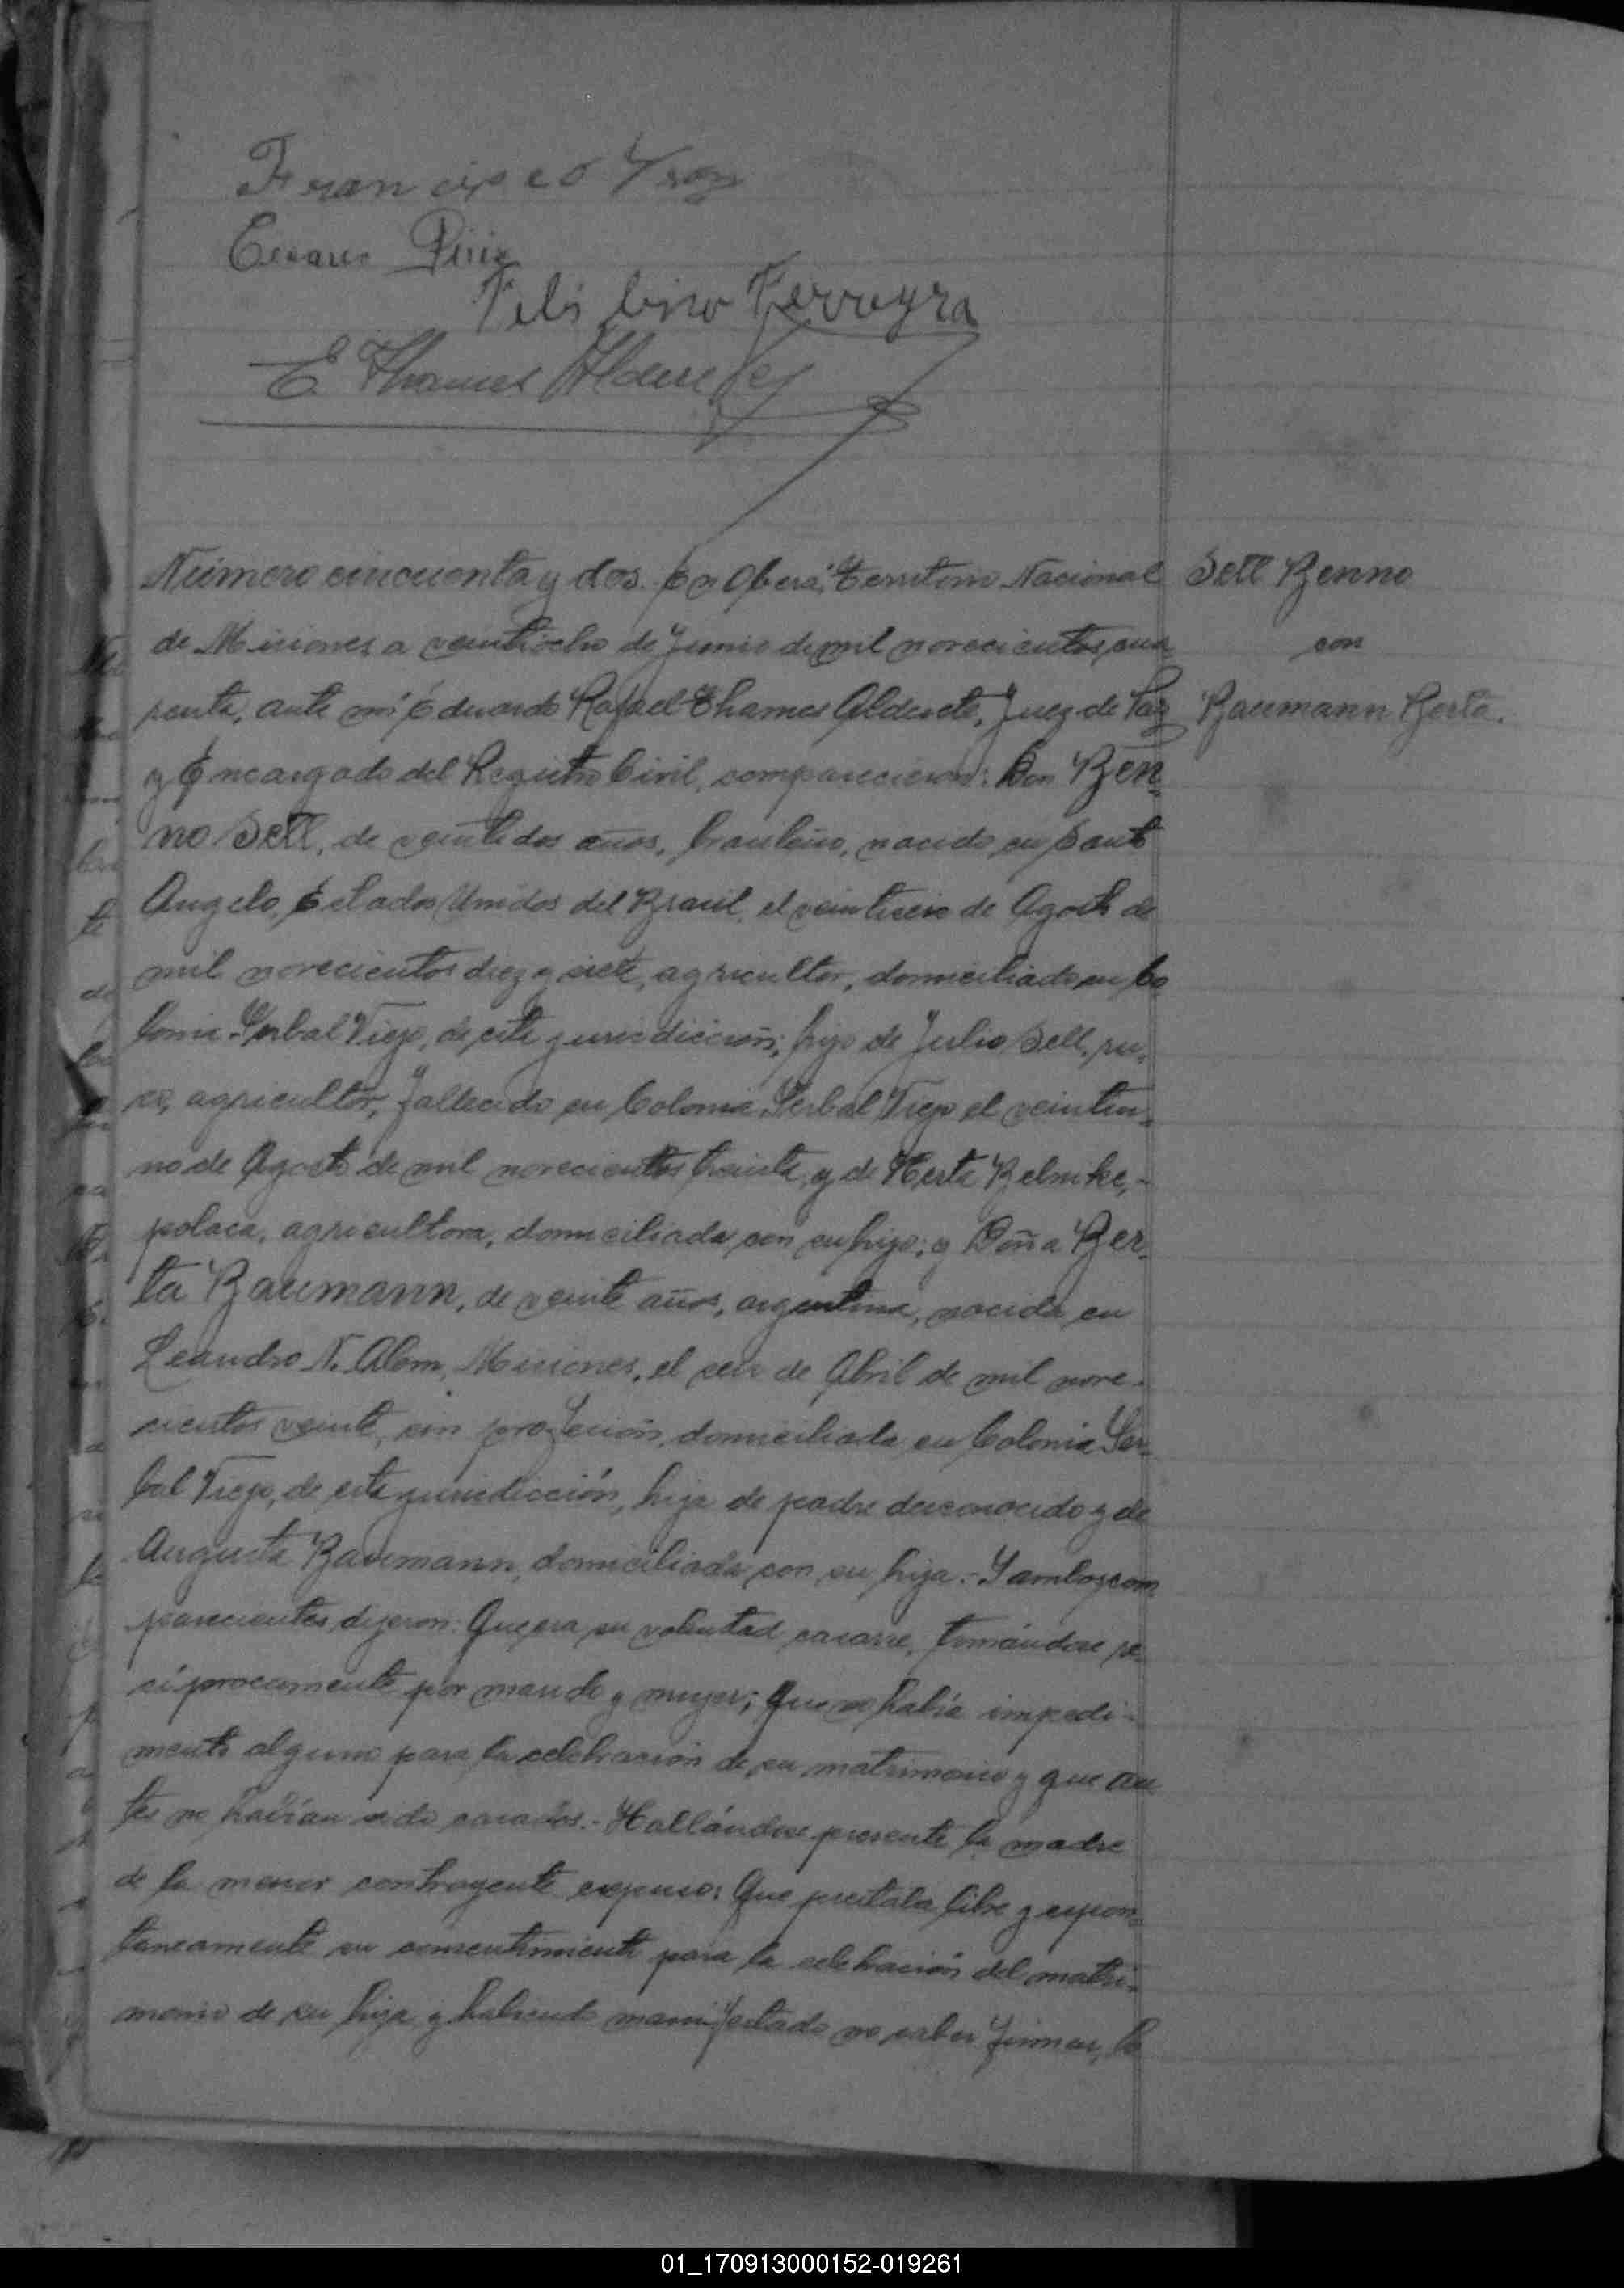 Francisco
Cesareo Piriz
Felisbino Ferreyra
E Thames Alderete
Número cincuenta y dos. En Oberá, Territorio Nacional
Sell Benno
de Misiones a veintiocho de Junio de mil novecientos cua
con
renta, ante mí Eduardo Rafael Thames Alderete, Juez de Paz
Baumann Berta.
y Encargado del Registro Civil, comparecieron: Don Ben-
no Sell, de veintidos años, brasileño, nacido en Santo
Angelo, Estados Unidos del Brasil, el veintiseis de Agosto de
mil novecientos diez y siete, agricultor, domiciliado en Co
lonia Yerbal Viejo, de esta jurisdicción; hijo de Julio Sell, ru-
so, agricultor, fallecido en Colonia Yerbal Viejo el veintiu-
no de Agosto de mil novecientos treinta, y de Herta Belnike,-
polaca, agricultora, domiciliada con su hijo; y Doña Ber-
ta Baumann, de veinte años, argentina, nacida en
Leandro N. Alem, Misiones, el seis de Abril de mil nove-
cientos veinte, sin profesión, domiciliada en Colonia Yer-
bal Viejo, de esta jurisdicción, hija de padre desconocido y de
Augusta Baumann, domiciliada con su hija.- Y ambos com
parecientes dijeron: Que era su voluntad casarse, tomándose re
cíprocamente por marido y mujer; Que no había impedi-
mento alguno para la celebración de su matrimonio y que an
tes no habían sido casados.- Hallándose presente la madre
de la menor contrayente expuso: Que prestaba libre y espon-
taneamente su consentimiento para la celebración del matri-
monio de su hija y habiendo manifestado no saber firmar, lo
01_170913000152-019261